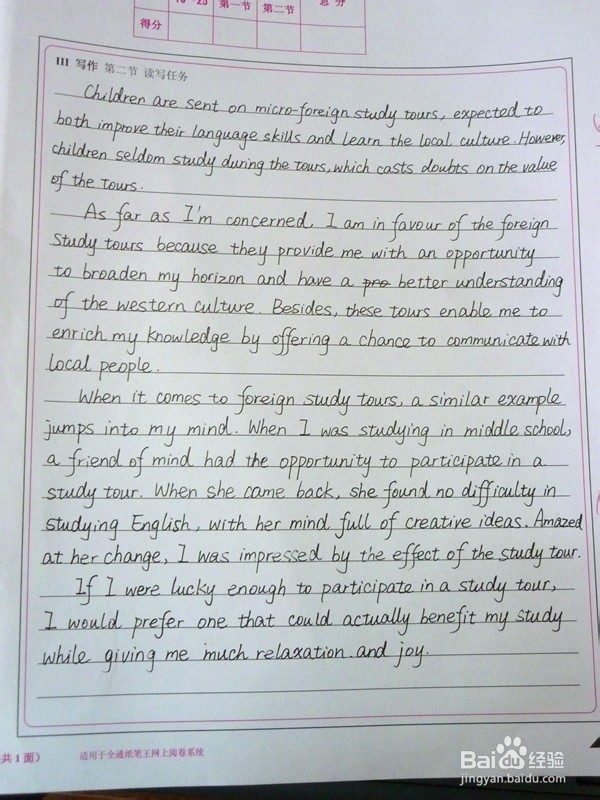 16-25 第一节 第二节 总分
得分
III 写作 第二节 读写任务
Children are sent on micro-foreign study tours, expected to
both improve their language skills and learn the local culture. However,
children seldom study during the tours, which casts doubts on the value
of the tours.
As far as I'm concerned, I am in favour of the foreign
study tours because they provide me with an opportunity
to broaden my horizon and have a better understanding
of the western culture. Besides, these tours enable me to
enrich my knowledge by offering a chance to communicate with
local people.
When it comes to foreign study tours, a similar example
jumps into my mind. When I was studying in middle school,
a friend of mind had the opportunity to participate in a
study tour. When she came back, she found no difficulty in
studying English, with her mind full of creative ideas. Amazed
at her change, I was impressed by the effect of the study tour.
If I were lucky enough to participate in a study tour,
I would prefer one that could actually benefit my study
while giving me much relaxation and joy.
共1面)
适用于全通纸笔王网上阅卷系统
Baidu经验
jingyan.baidu.com